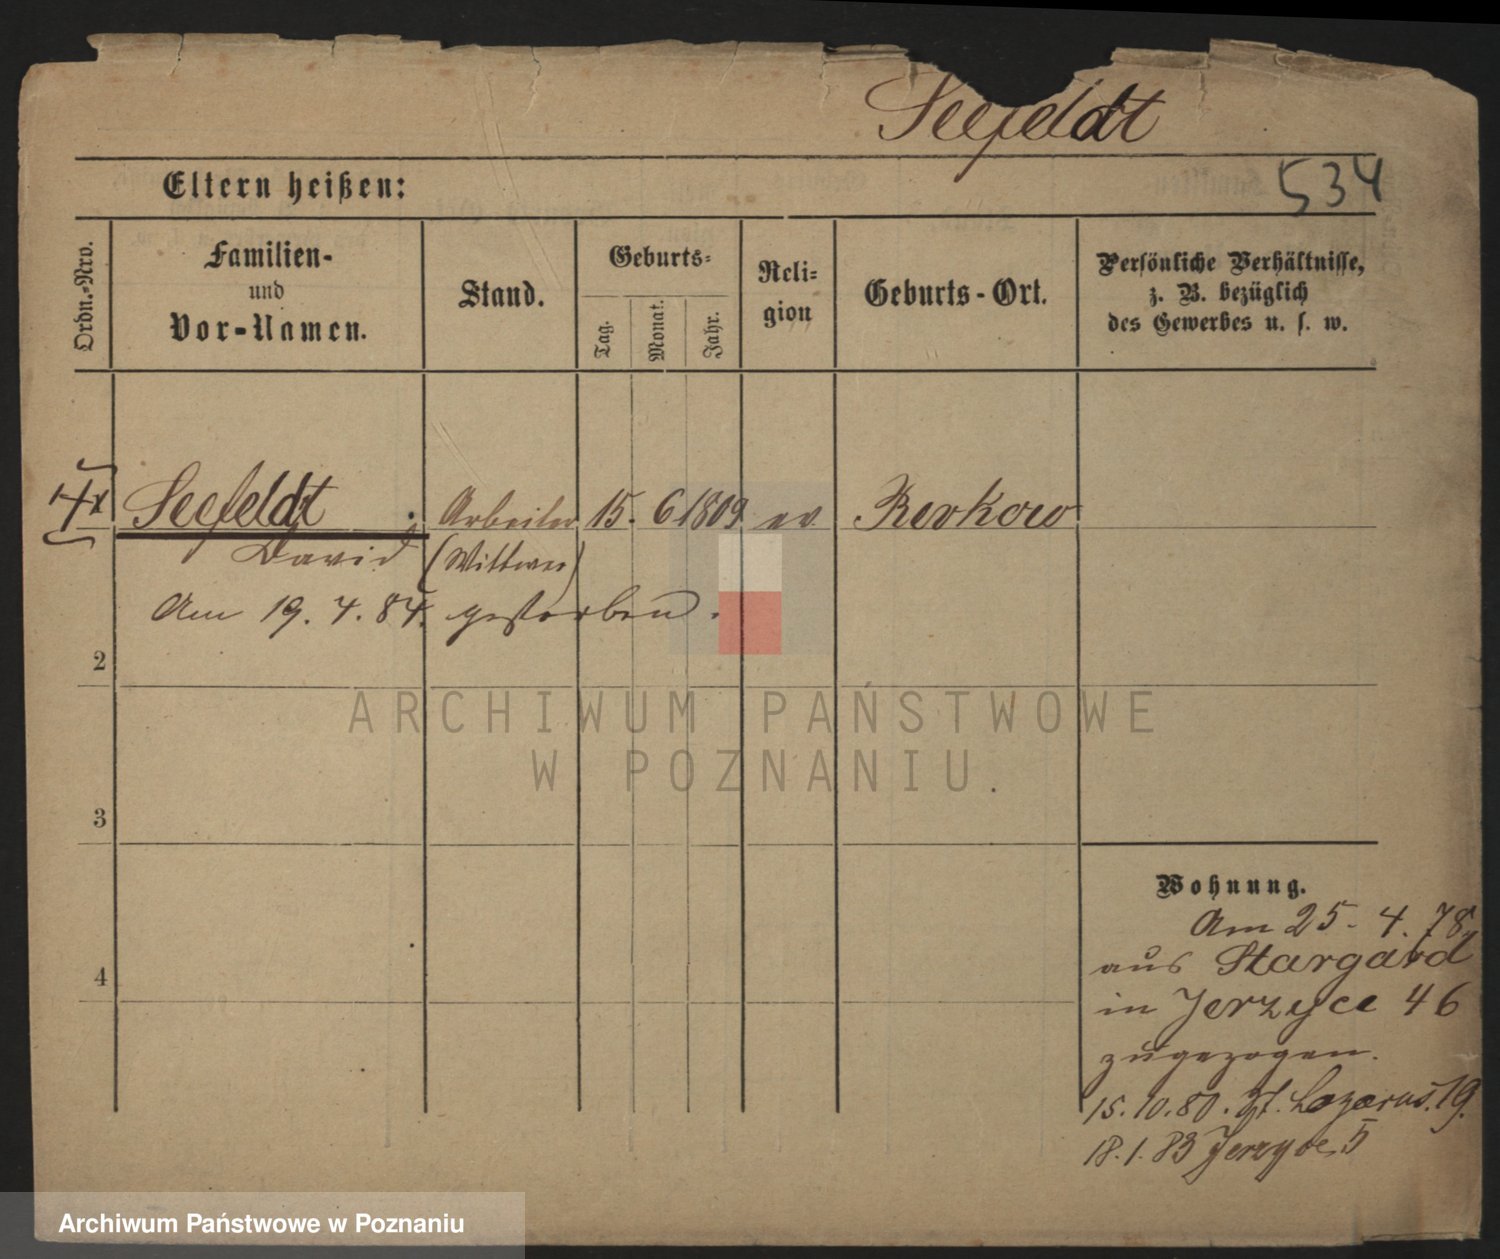 Seefeldt
Eltern heißen:
534
Ordn.-Nro.
Familien-
und
Vor-Namen.
Stand.
Geburts-
Tag.
Monat.
Jahr.
Reli-
gion
Geburts-Ort.
Persönliche Verhältnisse,
z. B. bezüglich
des Gewerbes u. s. w.
Seefeldt Arbeiter 15. 6 1809 ev.
David (Wittwer)
Am 19. 4. 84. gestorben.
2
3
4
ARCHIWUM PAŃSTWOWE
W POZNANIU.
Wohnung.
Am 25. 4. 78
aus Stargard
in Jerzyce 46
zugezogen.
15. 10. 80. St. Lazarus. 19.
18. 1. 83 Jerzyce 5
Archiwum Państwowe w Poznaniu